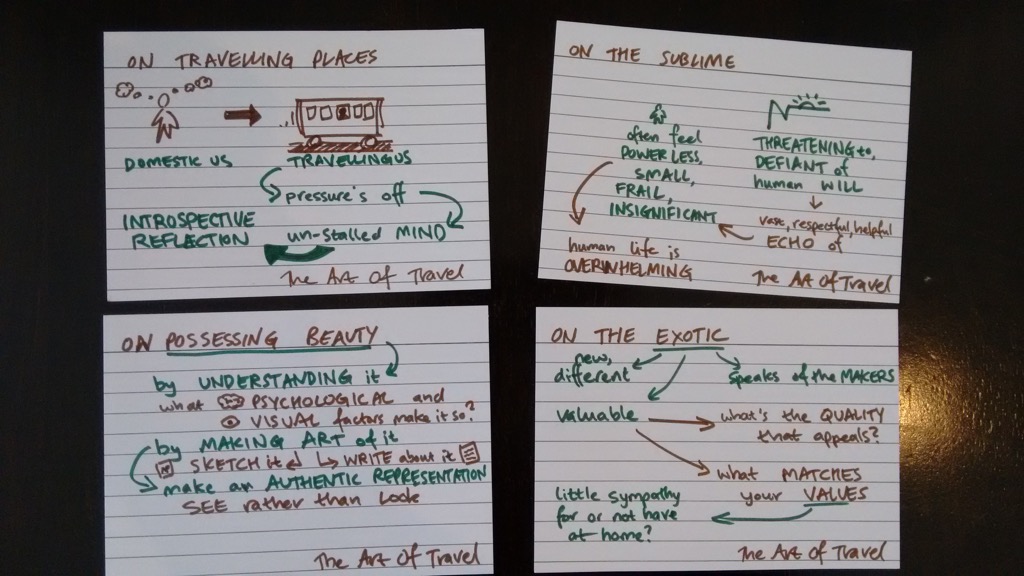 ON TRAVELLING PLACES
DOMESTIC US
TRAVELLING US
pressure's off
INTROSPECTIVE
REFLECTION
un-stalled MIND
The Art Of Travel
ON THE SUBLIME
often feel
POWERLESS,
SMALL,
FRAIL,
INSIGNIFICANT
THREATENING to,
DEFIANT of
human WILL
vast, respectful, helpful
ECHO of
human life is
OVERWHELMING
The Art Of Travel
ON POSSESSING BEAUTY
by UNDERSTANDING it
what PSYCHOLOGICAL and
VISUAL factors make it so?
by MAKING ART of it
SKETCH it WRITE about it
make an AUTHENTIC REPRESENTATION
SEE rather than Look
The Art Of Travel
ON THE EXOTIC
new,
different
speaks of the MAKERS
valuable
what's the QUALITY
that appeals?
what MATCHES
your VALUES
little sympathy
for or not have
at home?
The Art Of Travel